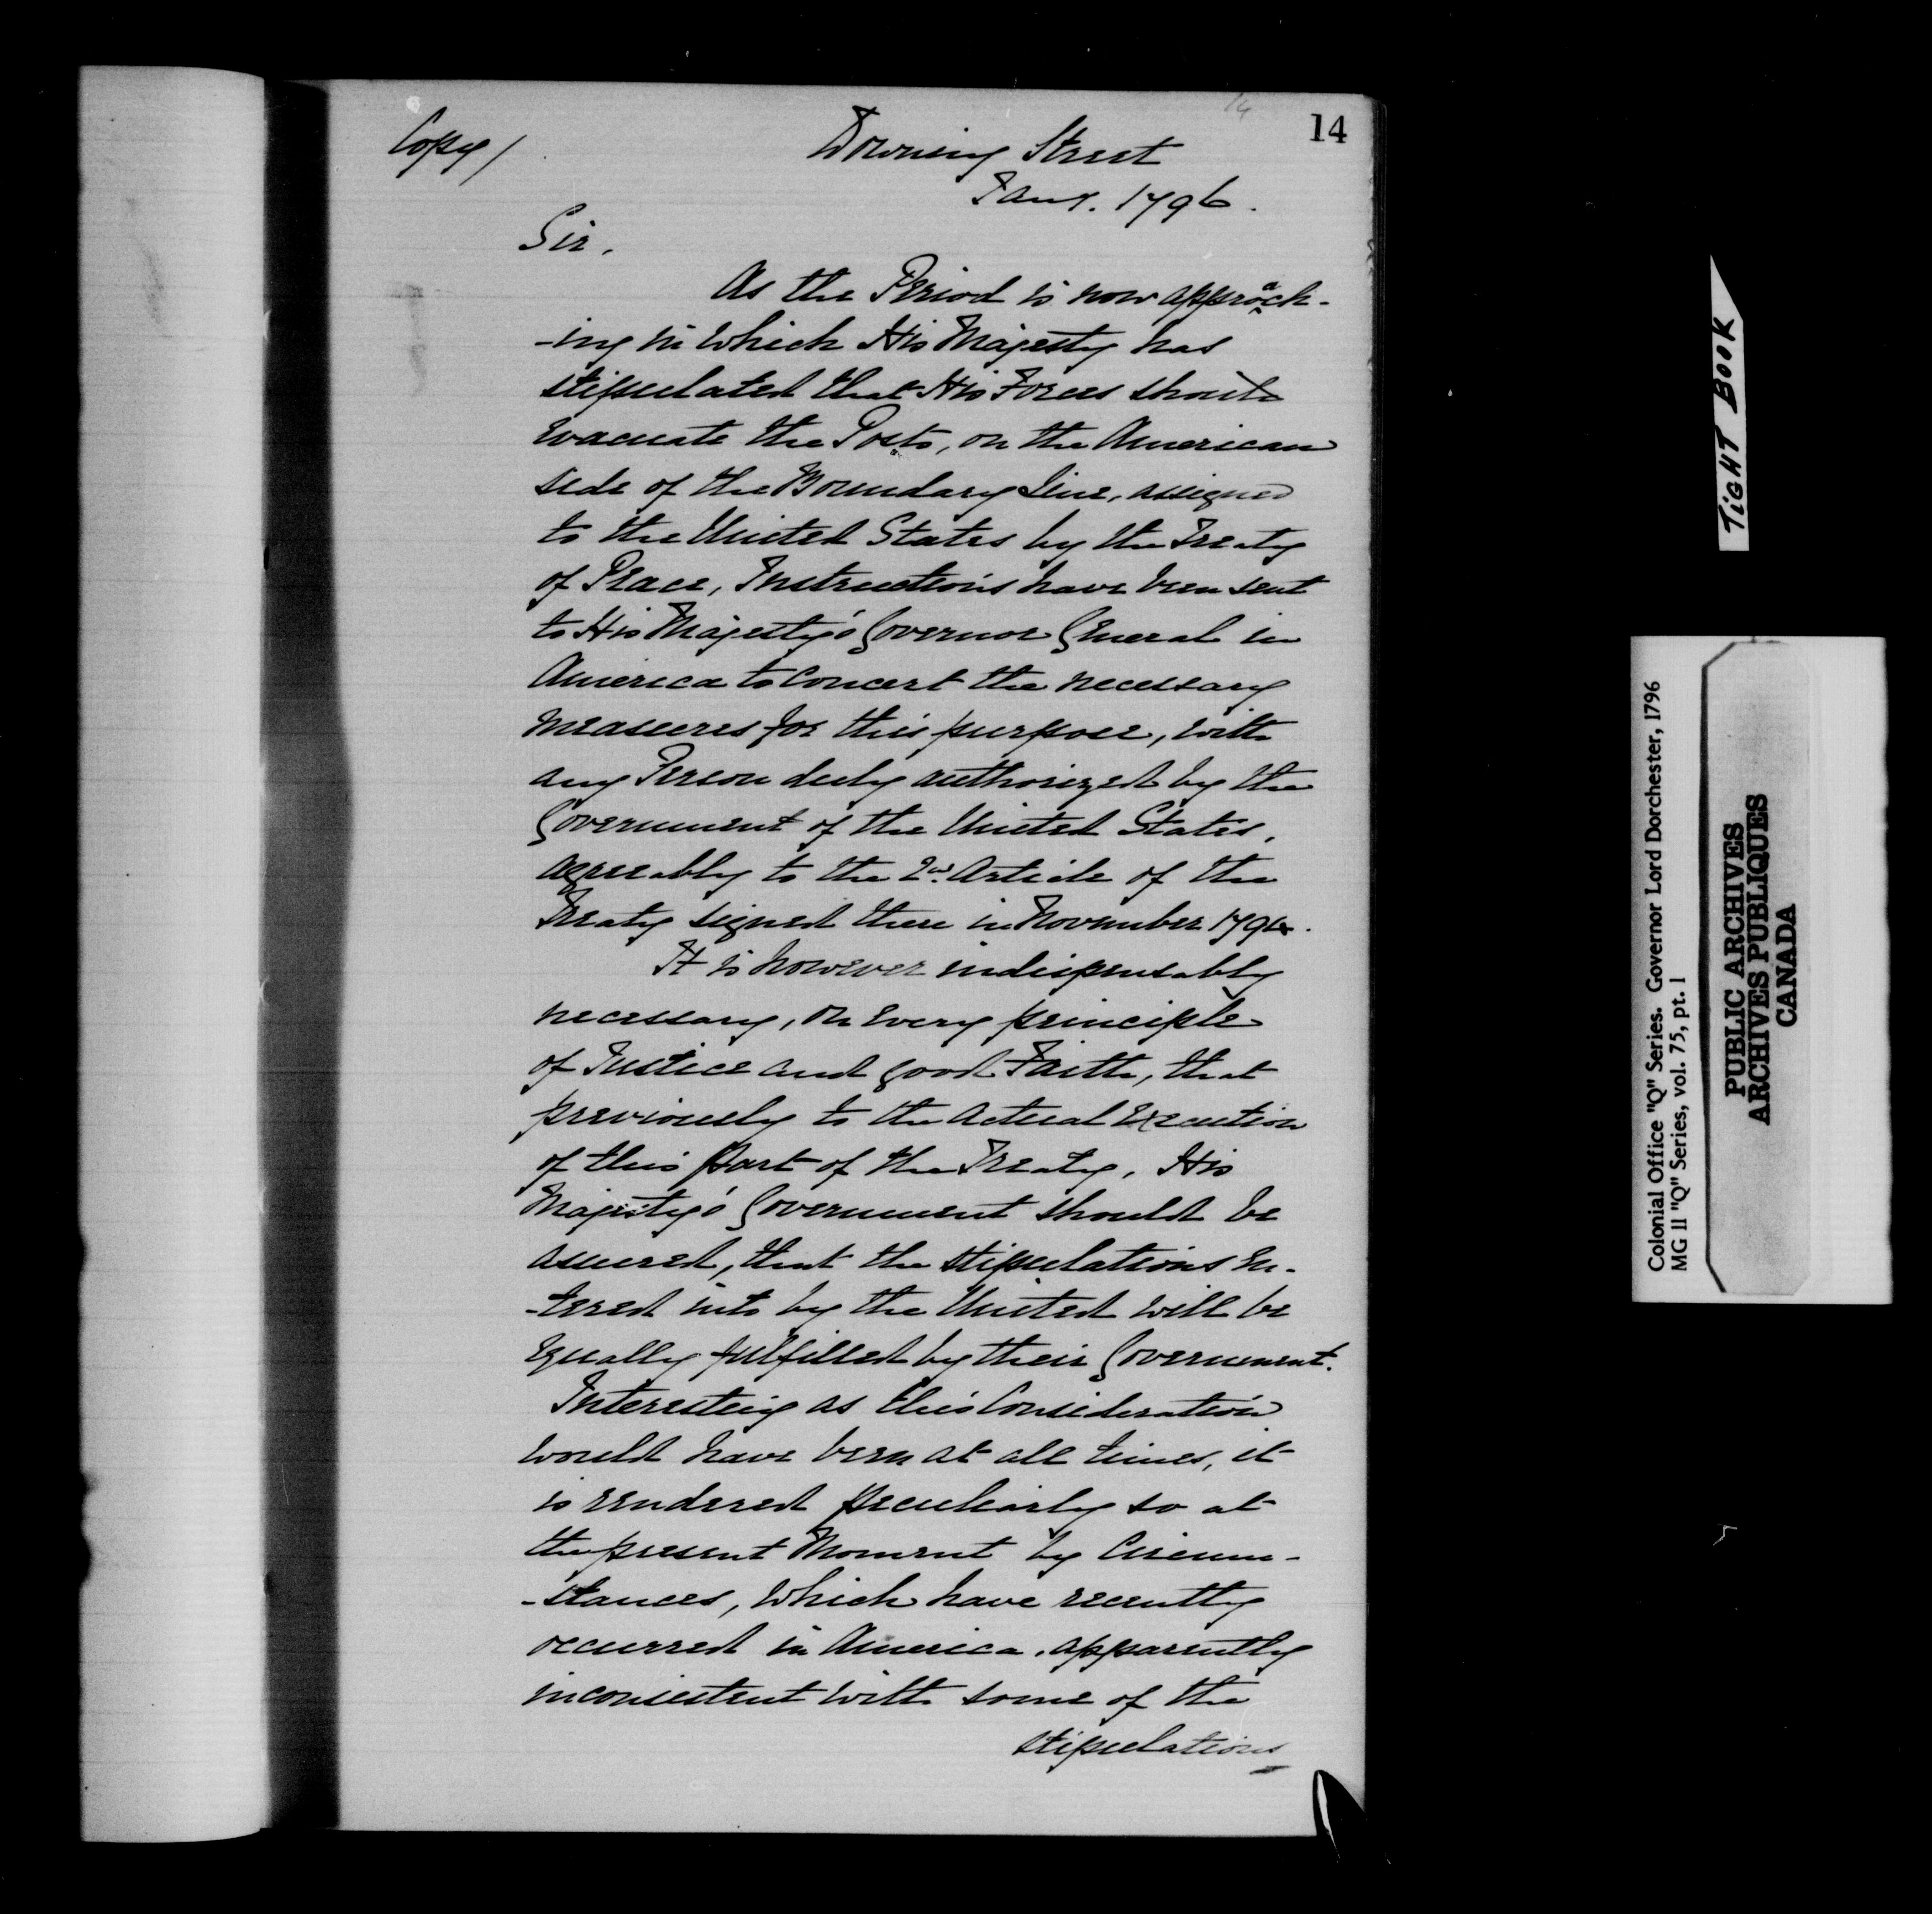 14
14
Copy/
Downing Street
Jany. 1796.
Sir,
As the Period is now approach-
-ing in which His Majesty has
stipulated that His Forces should
evacuate the Posts, on the American
side of the Boundary Line, assigned
to the United States by the Treaty
of Peace, Instructions have been sent
to His Majesty's Governor General in
America to Concert the necessary
measures for this purpose, with
any Person duly authorized by the
Government of the United States,
agreeably to the 2nd. Article of the
Treaty signed there in November 1794.
It is however indispensably
necessary, on every principle
of Justice and good Faith, that
previously to the actual Execution
of this part of the Treaty, His
Majesty's Government should be
assured, that the stipulations en-
-tered into by the United will be
equally fulfilled by their Government.
Interesting as this Consideration
would have been at all times, it
is rendered peculiarly so at
the present Moment by Circum-
-stances, which have recently
occurred in America, apparently
inconsistent with some of the
stipulations
TIGHT BOOK
Colonial Office "Q" Series. Governor Lord Dorchester, 1796
MG 11 "Q" Series, vol. 75, pt. 1
PUBLIC ARCHIVES
ARCHIVES PUBLIQUES
CANADA